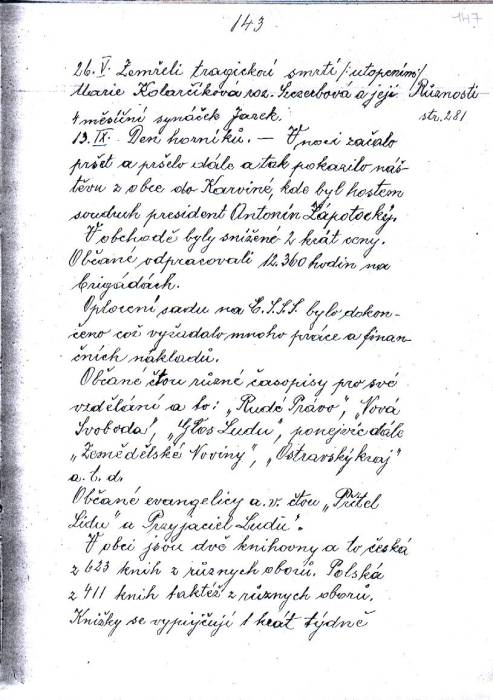 143
147
26. V. Zemřeli tragickou smrtí /: utopením /
Marie Kolarčíkova roz. Szczerbová a její
Různosti
4 měsíční synáček Jarek.
str. 281
13. IX. Den horníků. — V noci začalo
pršet a pršelo dále a tak pokazilo náš-
těvu z obce do Karviné, kde byl hostem
soudruh president Antonín Zápotocký.
V obchodě byly snížené 2 krát ceny.
Občané odpracovali 12.360 hodin na
brigádách.
Oplocení sadu na Č.S.S.S. bylo dokon-
čeno což vyžadalo mnoho práce a finan-
čních nákladů.
Občané čtou různé časopisy pro své
vzdělání a to: „Rudé Právo", „Nová
Svoboda", „Głos Ludu", ponejvíc dále
„Zemědělské Noviny", „Ostravský kraj"
a. t. d.
Občané evangelicy a. v. čtou „Přítel
Lidu" a Przyjaciel Ludu".
V obci jsou dvě knihovny a to česká
z 623 knih z různych oborů. Polská
z 411 knih taktéž z různych oborů.
Knížky se vypůjčují 1 krát týdně